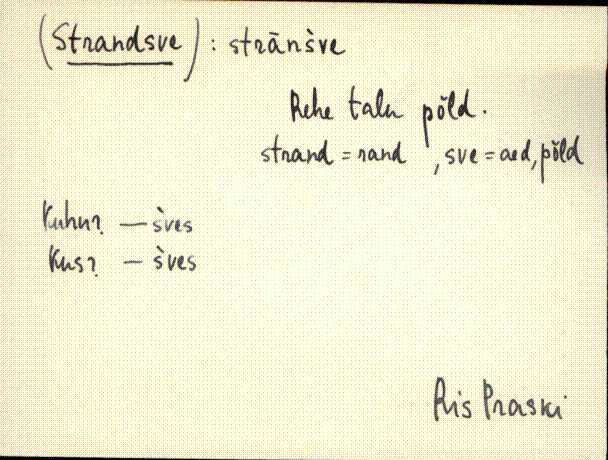 (Strandsve) : strāns̀ve
Rehe talu põld.
strand = rand , sve = aed, põld
Kuhu? — s̀ves
Kus? — s̀ves
Ris Praski